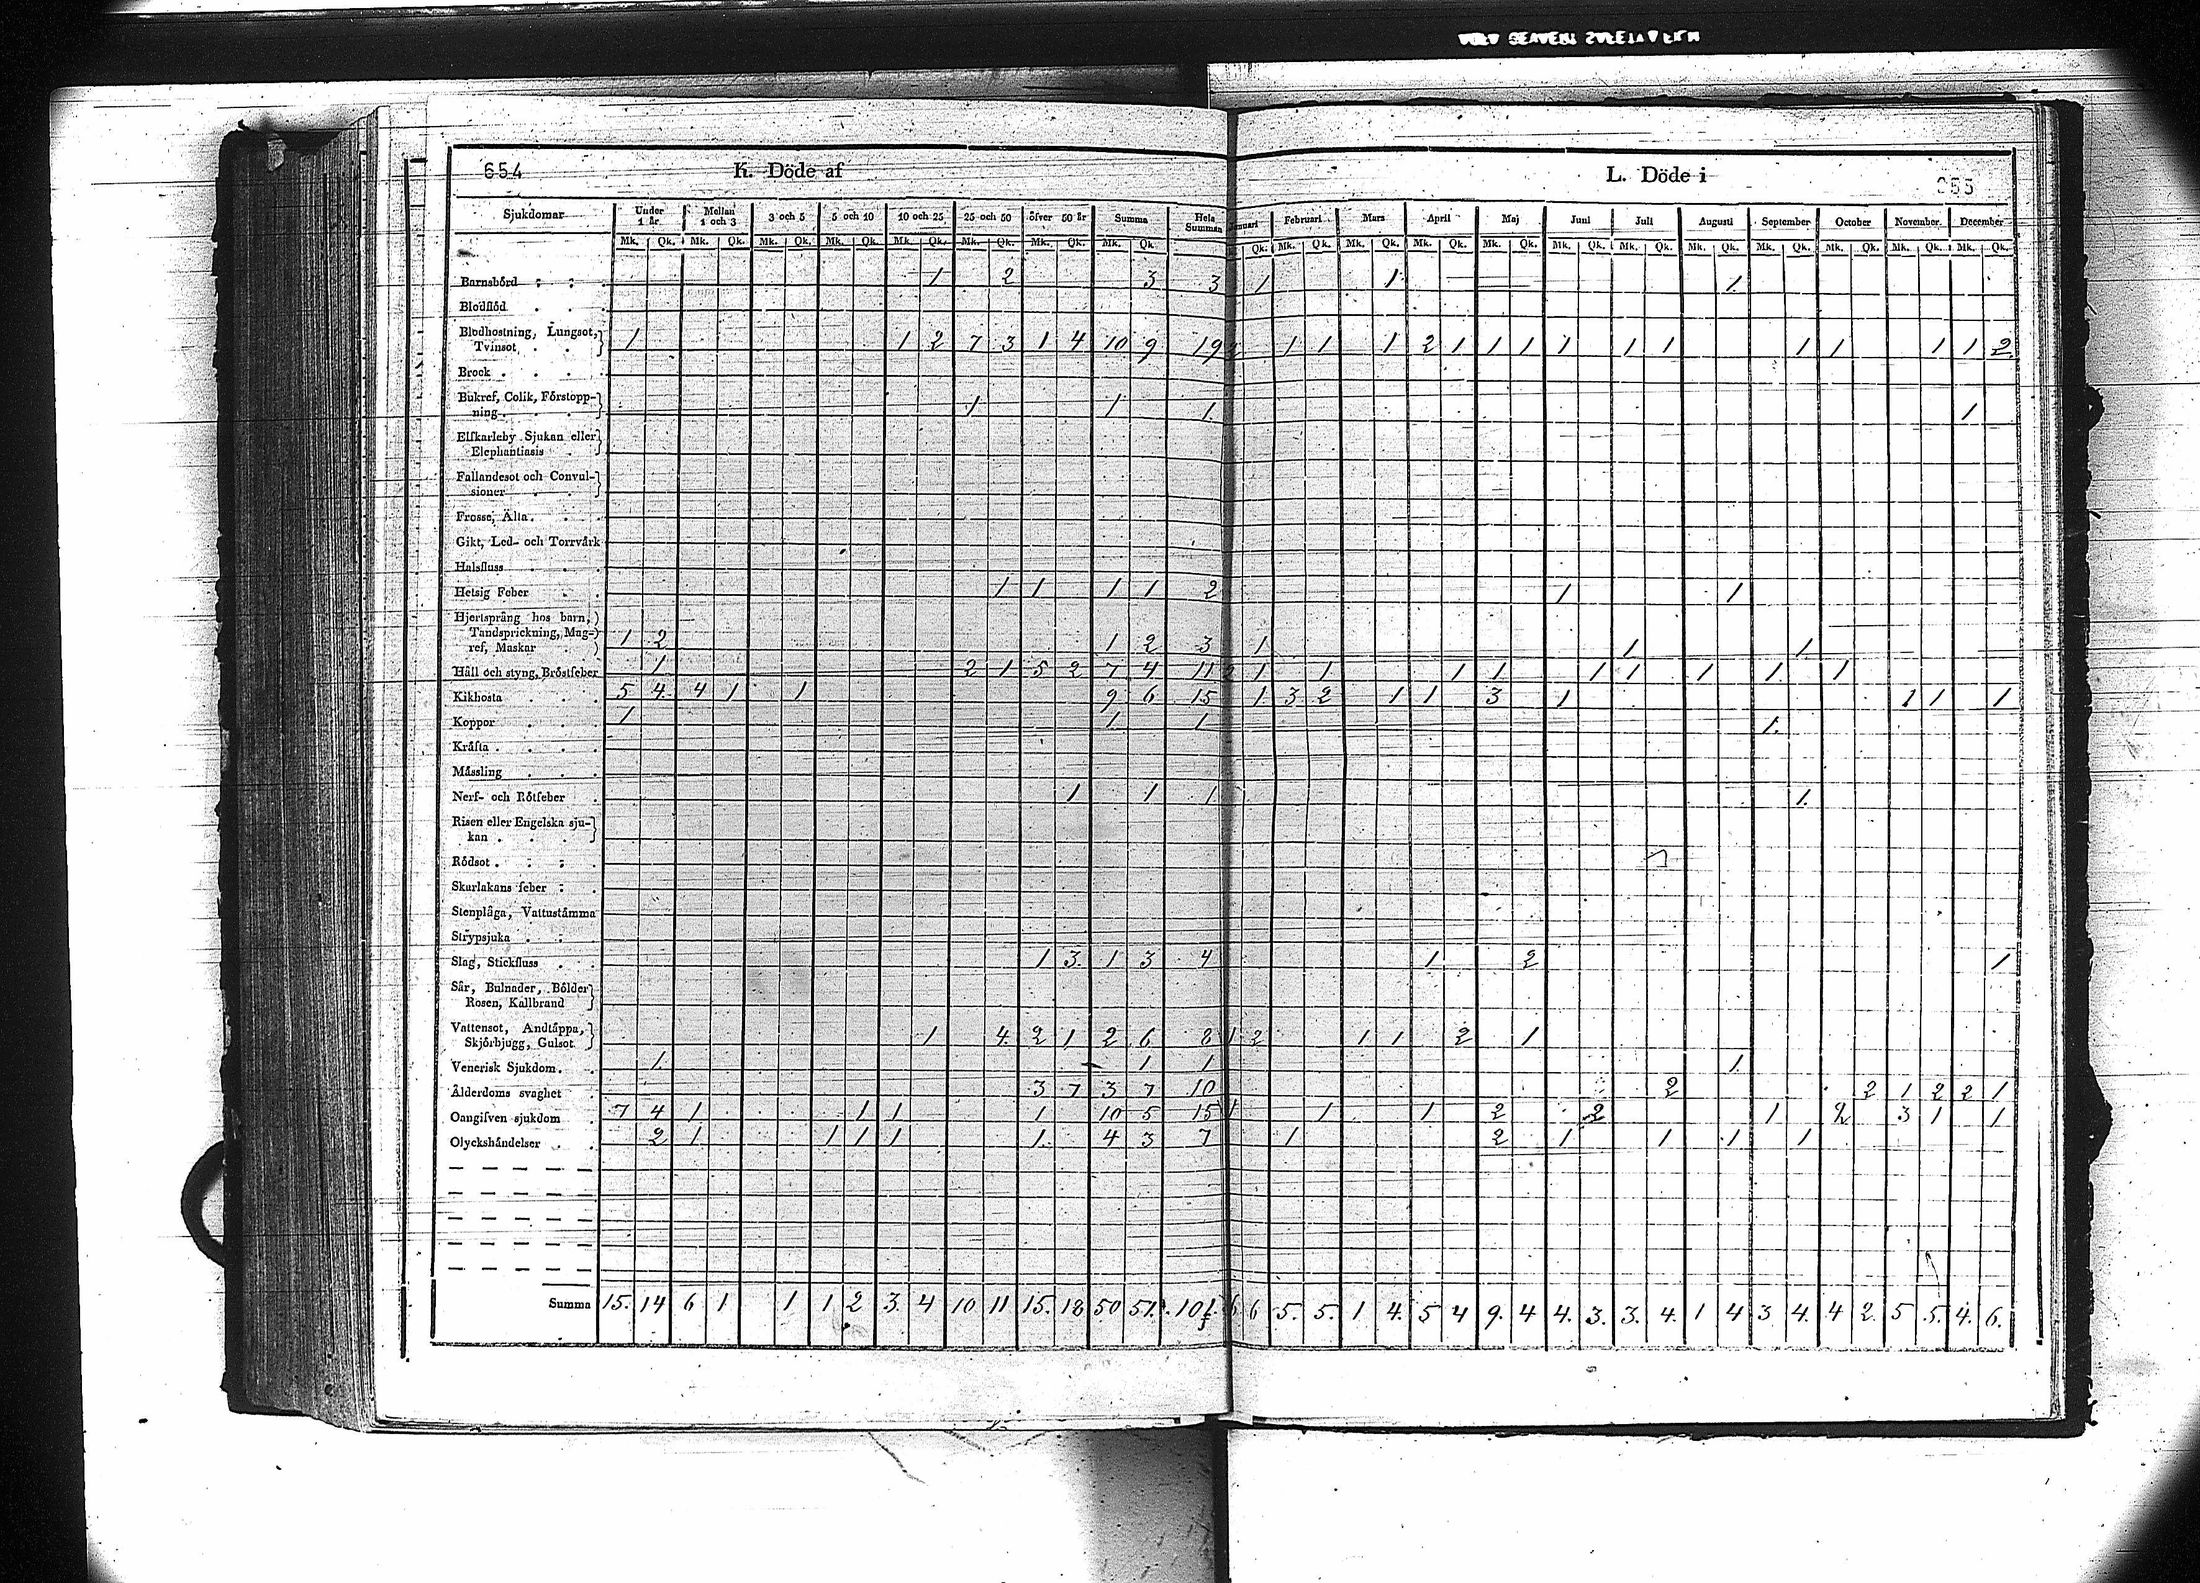 654
K. Döde af
L. Döde i
Sjukdomar Under 1 år. Mellan 1 och 3 3 och 5 5 och 10 10 och 25 25 och 50 öfver 50 år Summa Hela Summan Februari Mars April Maj Juni Juli Augusti September October November December
Mk. Qk. Mk. Qk. Mk. Qk. Mk. Qk. Mk. Qk. Mk. Qk. Mk. Qk. Mk. Qk. Qk. Mk. Qk. Mk. Qk. Mk. Qk. Mk. Qk. Mk. Qk. Mk. Qk. Mk. Qk. Mk. Qk. Mk. Qk. Mk. Qk. Mk. Qk.
Barnsbörd 1 2 3 3 1 1 1
Blodflöd
Blodhostning, Lungsot,
Tvinsot 1 1 2 7 3 1 4 10 9 19 2 1 1 1 2 1 1 1 1 1 1 1 1 1 1 2
Brock
Bukref, Colik, Förstopp-
ning 1 1 1 1
Elfkarleby Sjukan eller
Elephantiasis
Fallandesot och Convul-
sioner
Frossa, Älta
Gikt, Led- och Torrvärk
Halsfluss
Hetsig Feber 1 1 1 1 2 1 1
Hjertsprång hos barn,
Tandsprickning, Mag-
ref, Maskar 1 2 1 2 3 1 1 1
Håll och styng, Bröstfeber 1 2 1 5 2 7 4 11 2 1 1 1 1 1 1 1 1 1
Kikhosta 5 4 4 1 1 9 6 15 1 3 2 1 1 3 1 1 1 1
Koppor 1 1 1 1
Kräfta
Mässling
Nerf- och Rötfeber 1 1 1 1
Risen eller Engelska sju-
kan
Rödsot
Skarlakans feber
Stenplåga, Vattustämma
Strypsjuka
Slag, Stickfluss 1 3 1 3 4 1 2 1
Sår, Bulnader, Bölder
Rosen, Kallbrand
Vattensot, Andtäppa,
Skjörbjugg, Gulsot 1 4 2 1 2 6 8 1 2 1 1 2 1
Venerisk Sjukdom 1 1 1 1
Ålderdoms svaghet 3 7 3 7 10 2 2 1 2 2 1
Oangifven sjukdom 7 4 1 1 1 1 10 5 15 1 1 1 2 2 1 2 3 1 1
Olyckshändelser 2 1 1 1 1 1 4 3 7 1 2 1 1 1 1
Summa 15. 14 6 1 1 1 2 3. 4 10 11 15. 18 50 51. 101. 6 6 5. 5. 1 4. 5 4 9. 4 4. 3. 3. 4. 1 4 3 4. 4 2. 5 5. 4. 6.